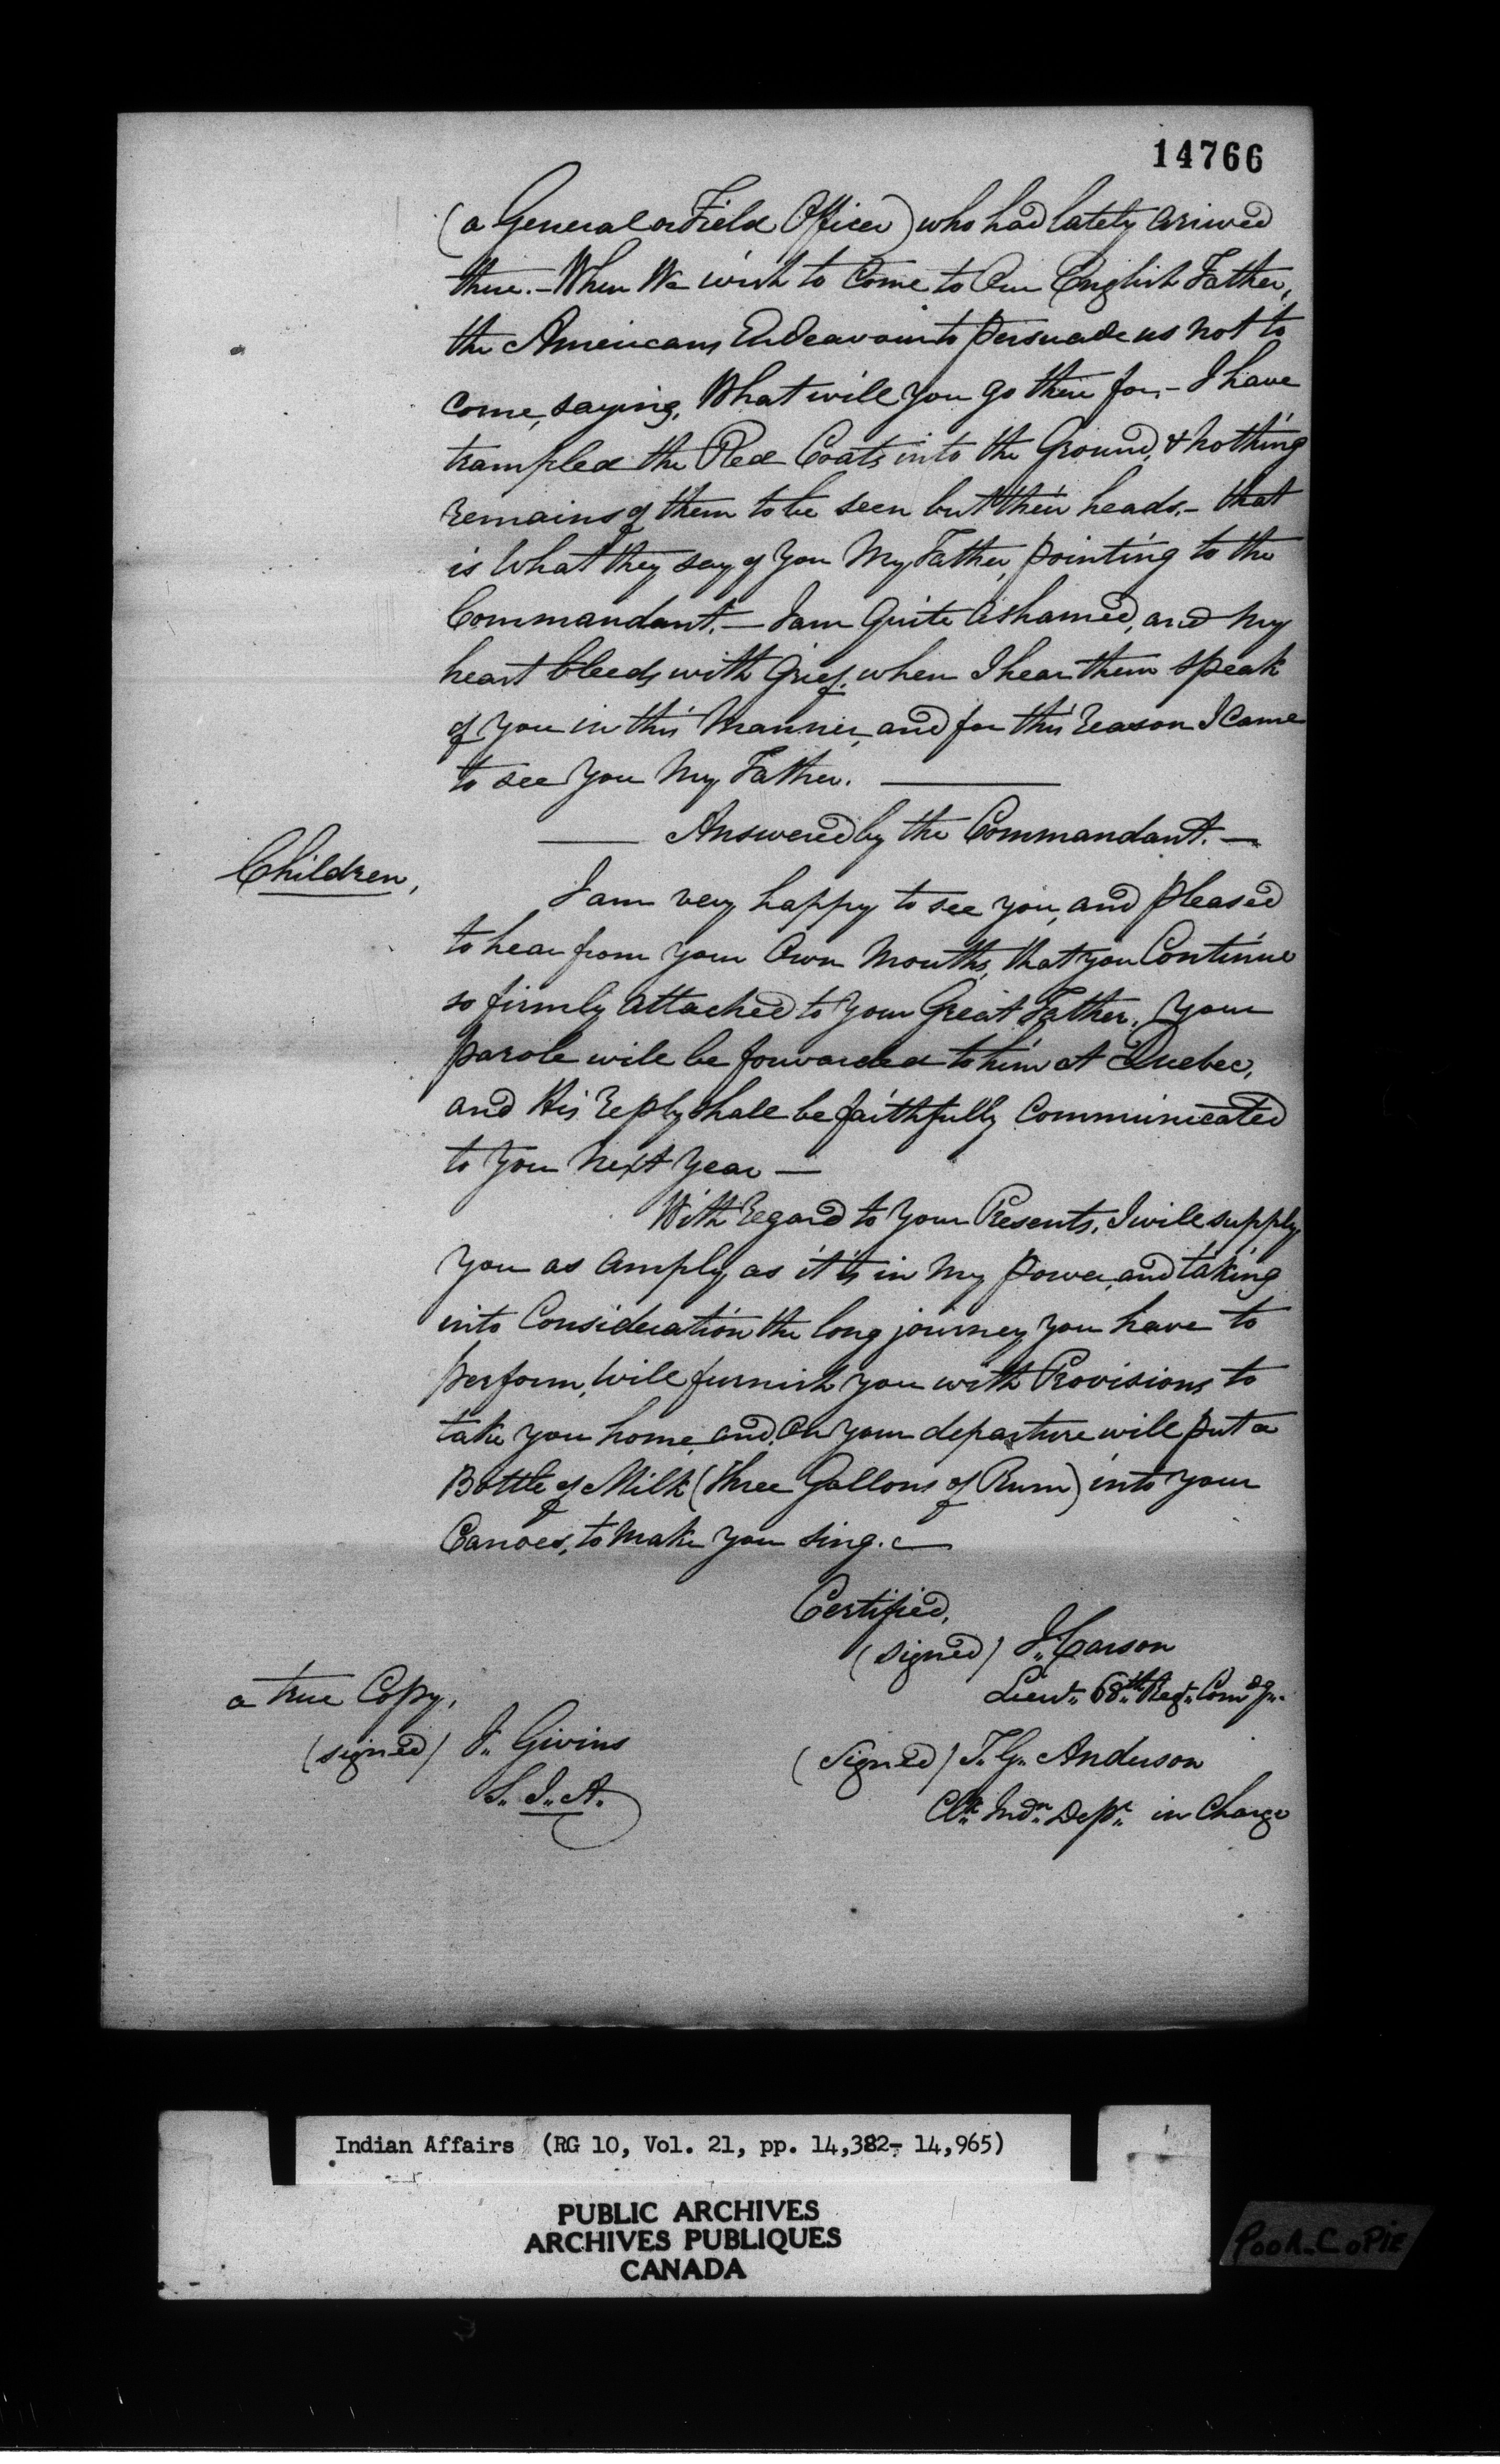 14766
(a General or Field Officer) who had lately arrived
there. - When We wish to Come to Our English Father,
the Americans Endeavour to persuade us not to
come, saying, What will you go there for, - I have
trampled the Red Coats into the Ground, & nothing
remains of them to be seen but their heads. - that
is What they say of You My Father, pointing to the
Commandant. - I am Quite Ashamed, and My
heart bleeds with Grief, when I hear them speak
of You in this Manner, and for this Reason I Came
to see You My Father.
Answered by the Commandant. -
Children,
I am very happy to see you, and pleased
to hear from your Own Mouths, that you Continue
so firmly attached to your Great Father. Your
parole will be forwarded to him at Quebec,
and His Reply shall be faithfully Communicated
to You Next Year -
With Regard to Your Presents, I will supply
You as Amply as it is in My power, and taking
into Consideration the long journey You have to
perform, Will furnish you with Provisions to
take you home, and, On your departure will put a
Bottle of Milk (three Gallons of Rum) into your
Canoes, to Make You Sing. -
Certified,
(signed) J. Carson
Lieut. 68th Regt. Comdg.
a true Copy,
(signed) J. Givins
S. I. A.
(Signed) T. G. Anderson
Clk. Indn. Dept. in Charge
Indian Affairs (RG 10, Vol. 21, pp. 14,382- 14,965)
PUBLIC ARCHIVES
ARCHIVES PUBLIQUES
CANADA
POOR_COPIE